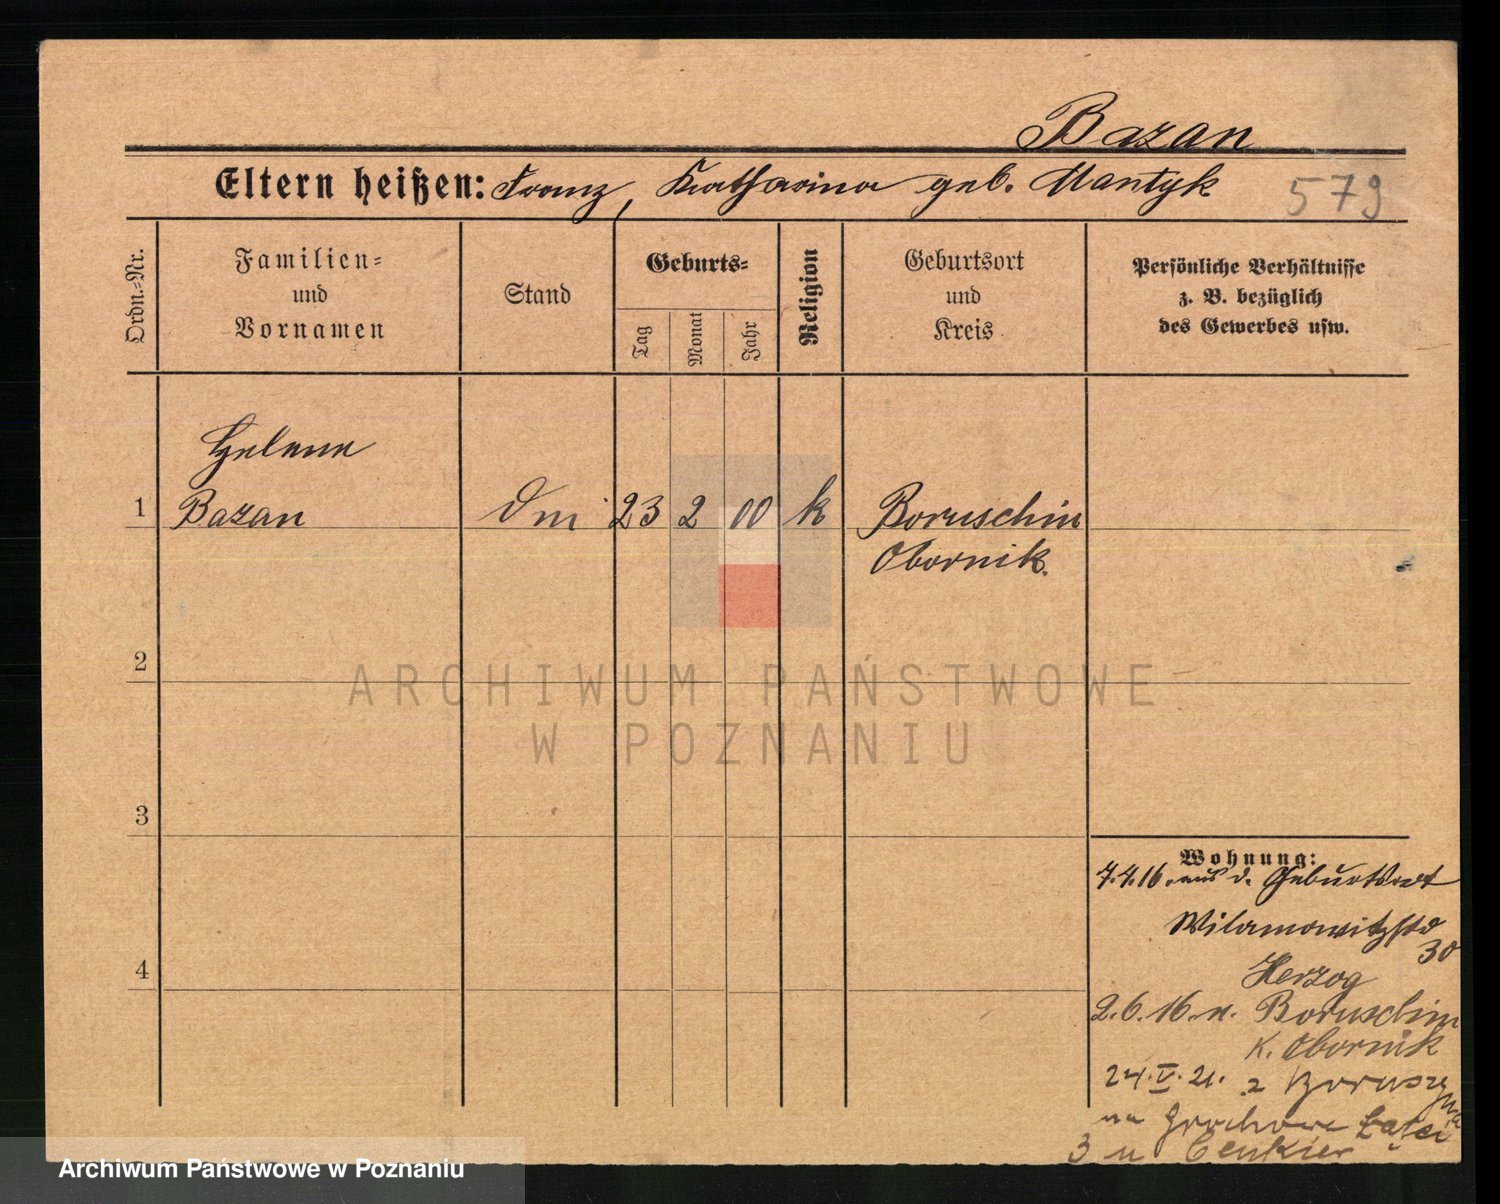 Bazan
Eltern heißen: Franz, Katharina geb. Mantyk 579
Ordn.=Nr.
Familien=
und
Vornamen
Stand
Geburts=
Tag
Monat
Jahr
Religion
Geburtsort
und
Kreis
Persönliche Verhältnisse
z. B. bezüglich
des Gewerbes usw.
Helene
1 Bazan Dm 23 2 00 k Boruschin
Obornik.
2
3
4
Wohnung:
7.4.16. aus d. Geburtsort
Wilamowitzstr
30
Herzog
2.6.16. n. Boruschin
K. Obornik
24.V.21. z Boruszyna
na Grochowe Łąki
3 u Cenkier
ARCHIWUM PAŃSTWOWE
W POZNANIU
Archiwum Państwowe w Poznaniu